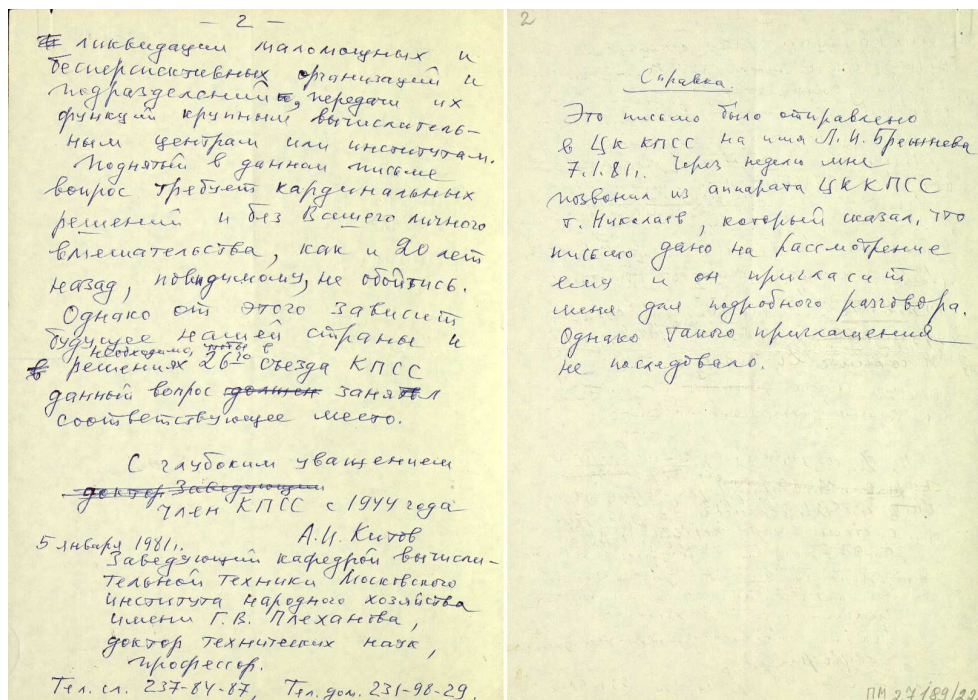 — 2 —
ликвидации маломощных и
бесперспективных организаций и
подразделений с передачи их
функций крупным вычислитель-
ным центрам или институтам.
Поднятый в данном письме
вопрос требует кардинальных
решений и без Вашего личного
вмешательства, как и 20 лет
назад, повидимому, не обойтись.
Однако от этого зависит
будущее нашей страны и
необходимо, чтобы в
решениях 26го съезда КПСС
данный вопрос должен занял
соответствующее место.
С глубоким уважением
доктор Заведующий
член КПСС с 1944 года
А.И. Китов
5 января 1981г.
Заведующий кафедрой вычисли-
тельной техники Московского
института народного хозяйства
имени Г.В. Плеханова,
доктор технических наук,
профессор.
Тел. сл. 237-84-87, Тел. дом. 231-98-29.
2
Справка.
Это письмо было отправлено
в ЦК КПСС на имя Л.И. Брежнева
7.1.81г. Через недели мне
позвонил из аппарата ЦК КПСС
т. Николаев, который сказал, что
письмо дано на рассмотрение
ему и он пригласит
меня для подробного разговора.
Однако такого приглашения
не последовало.
ПМ 27189/22